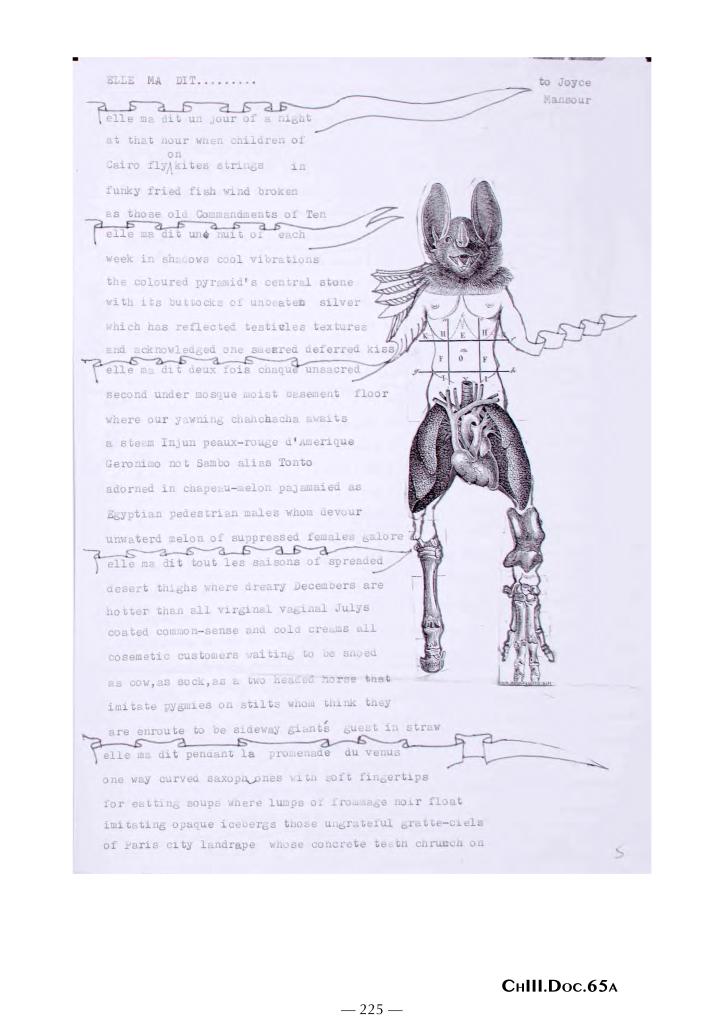 ELLE MA DIT.........
to Joyce
Mansour
elle ma dit un jour of a night
at that hour when children of
on
Cairo fly kites strings in
funky fried fish wind broken
as those old Commandments of Ten
elle ma dit une nuit of each
week in shadows cool vibrations
the coloured pyramid's central stone
with its buttocks of unbeaten silver
which has reflected testicles textures
and acknowledged one smeared deferred kiss
elle ma dit deux fois chaque unsacred
second under mosque moist basement floor
where our yawning chahchacha awaits
a steam Injun peaux-rouge d'Amerique
Geronimo not Sambo alias Tonto
adorned in chapeau-melon pajamaied as
Egyptian pedestrian males whom devour
unwaterd melon of suppressed females galore
elle ma dit tout les saisons of spreaded
desert thighs where dreary Decembers are
hotter than all virginal vaginal Julys
coated common-sense and cold creams all
cosemetic customers waiting to be shoed
as cow,as sock,as a two headed horse that
imitate pygmies on stilts whom think they
are enroute to be sideway giants guest in straw
elle ma dit pendant la promenade du venus
one way curved saxophones with soft fingertips
for eatting soups where lumps of frommage noir float
imitating opaque icebergs those ungrateful gratte-ciels
of Paris city landrape whose concrete teeth chrunch on
K H E H
F O F
I I
5
CHIII.DOC.65A
— 225 —